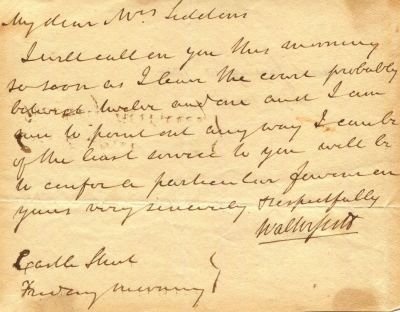 My dear Mrs Siddons
I will call on you this morning
so soon as I leave the court probably
betwixt twelve and one and I am
sure to point out any way I can be
of the least service to you will be
to confer a particular favour on
yours very sincerely & respectfully
Walter Scott
Castle Street
Friday morning